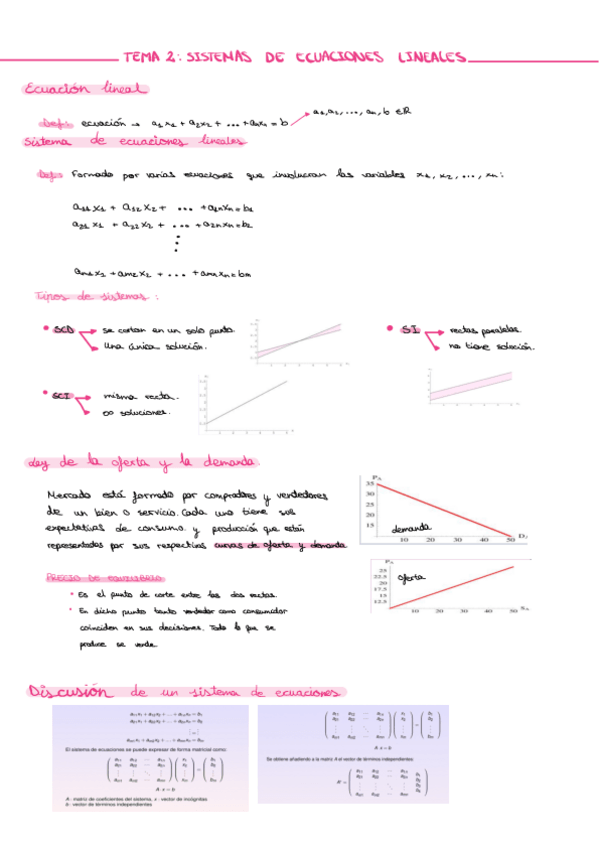 TEMA 2: SISTEMAS DE ECUACIONES LINEALES
Ecuación lineal
a1, a2, ..., an, b ∈ ℝ
Def.: ecuación → a1x1 + a2x2 + ... + anxn = b
Sistema de ecuaciones lineales
Def: Formado por varias ecuaciones que involucran las variables x1, x2, ..., xn:
a11x1 + a12x2 + ... + a1nxn = b1
a21x1 + a22x2 + ... + a2nxn = b2
⋮
am1x1 + am2x2 + ... + amnxn = bm
Tipos de sistemas:
• SCD → se cortan en un solo punto.
Una única solución.
• SI → rectas paralelas
no tiene solución.
• SCI → misma recta.
∞ soluciones.
Ley de la oferta y la demanda
Mercado está formado por compradores y vendedores
de un bien o servicio. Cada uno tiene sus
expectativas de consumo y producción que están
representadas por sus respectivas curvas de oferta y demanda
35
30
25
20
15
demanda
10 20 30 40 50
PRECIO DE EQUILIBRIO
• Es el punto de corte entre las dos rectas.
• En dicho punto tanto vendedor como consumidor
coinciden en sus decisiones. Todo lo que se
produce se vende.
25
22.5
20
17.5
15
12.5
oferta
10 20 30 40 50
Discusión de un sistema de ecuaciones
a11x1 + a12x2 + ... + a1nxn = b1
a21x1 + a22x2 + ... + a2nxn = b2
am1x1 + am2x2 + ... + amnxn = bm
El sistema de ecuaciones se puede expresar de forma matricial como:
A · x = b
A : matriz de coeficientes del sistema, x : vector de incógnitas
b : vector de términos independientes
A · x = b
Se obtiene añadiendo a la matriz A el vector de términos independientes: